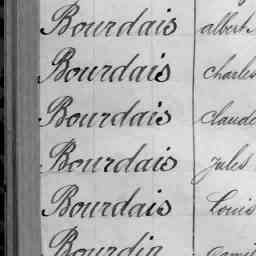 Bourdais albert
Bourdais Charles
Bourdais Claude
Bourdais Jules
Bourdais Louis
Bourdin